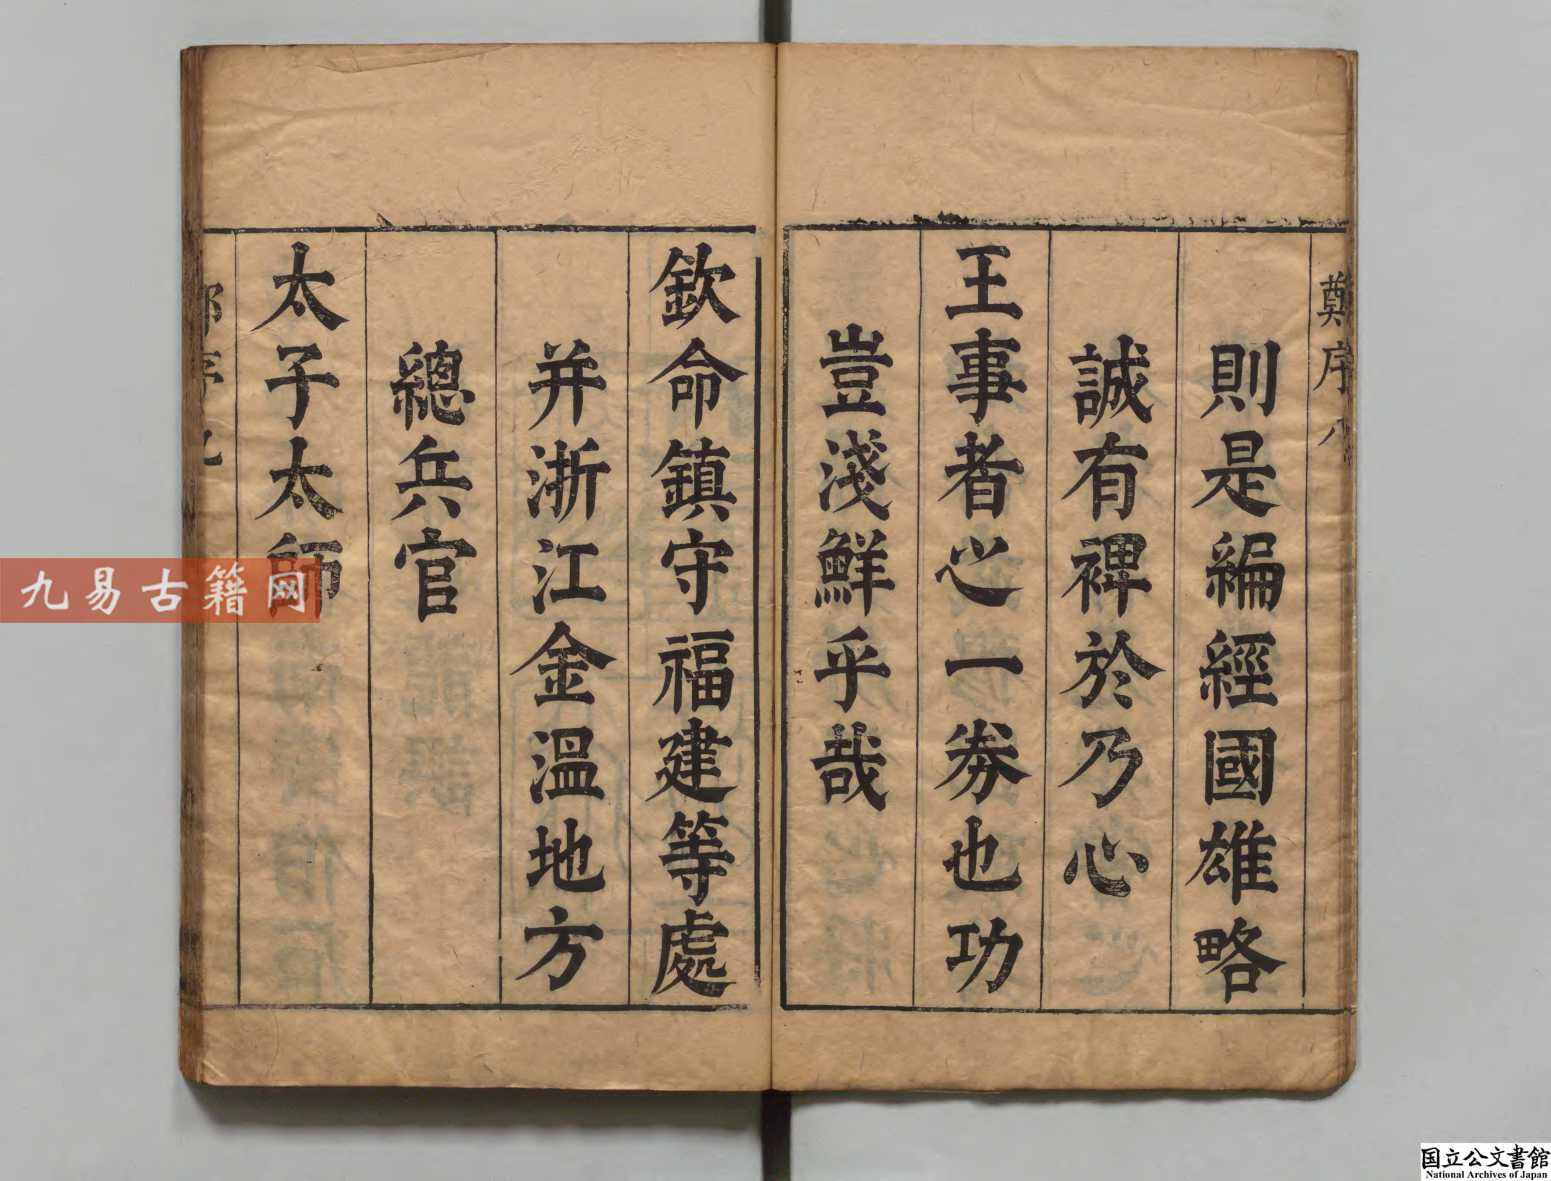 鄭序 八
則是編經國雄略
誠有裨於乃心
王事者之一券也功
豈淺鮮乎哉
欽命鎮守福建等處
并浙江金溫地方
總兵官
太子太師
九易古籍网
国立公文書館
National Archives of Japan